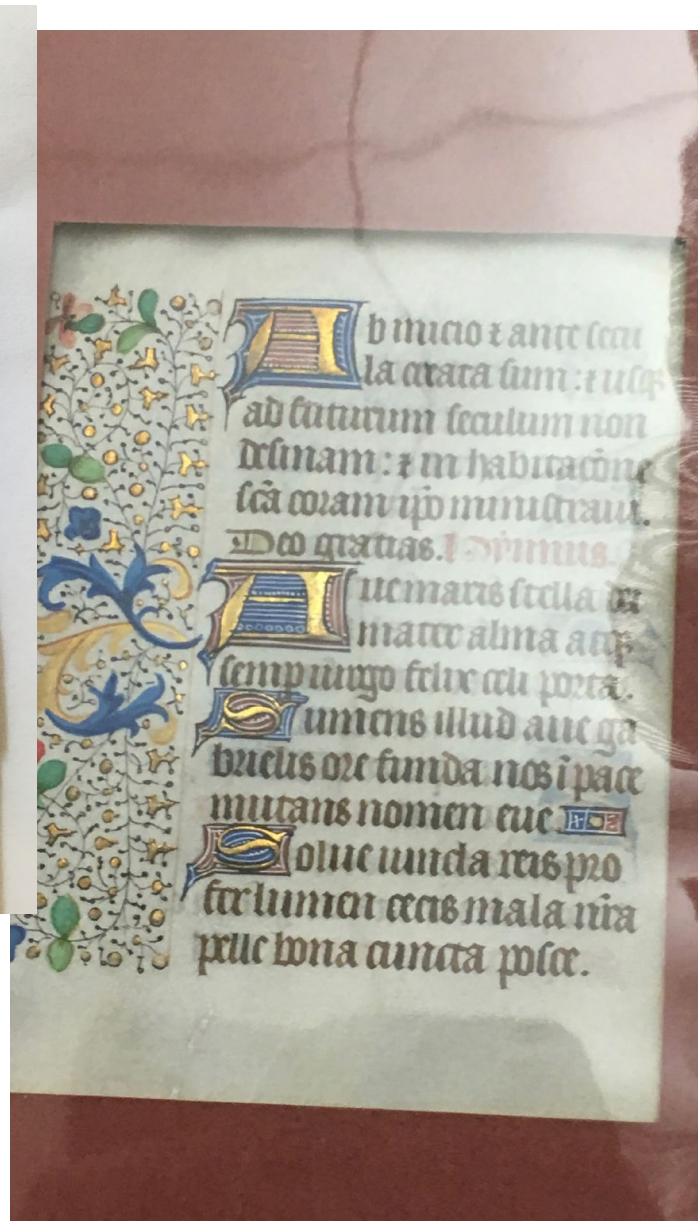 Ab inicio ⁊ ante secu
la creata sum : ⁊ usqꝫ
ad futurum seculum non
desinam : ⁊ in habitacōne
scā coram ip̄o ministraui.
Deo gratias. Hymnus.
Aue maris stella dei
mater alma atqꝫ
semp uirgo felix celi porta.
Sumens illud aue ga
brielis ore funda nos ī pace
mutans nomen eue.
Solue uincla reis pro
fer lumen cecis mala nr̄a
pelle bona cuncta posce.